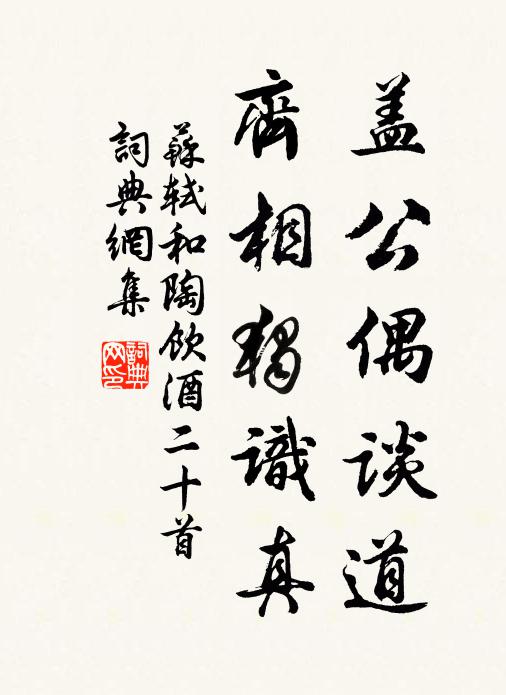 盖公偶談道
齊相獨識真
蘇軾和陶飲酒二十首
詞典網集
詞典網印